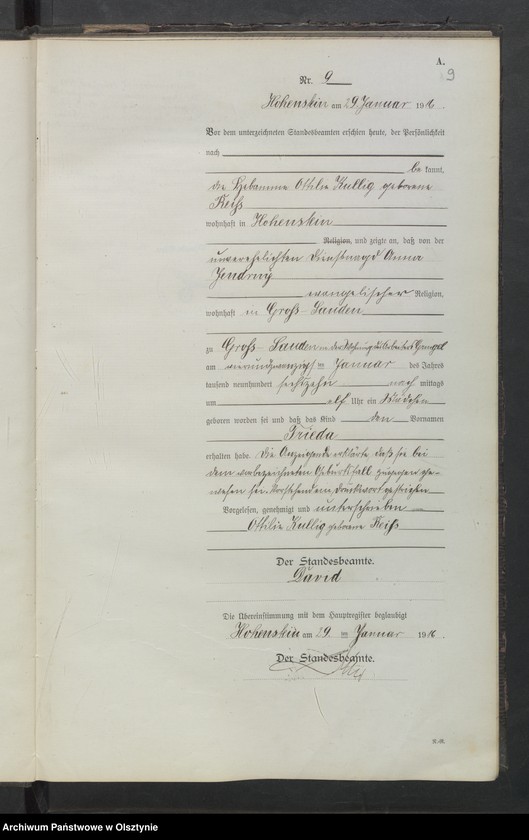 A.
9
Nr. 9
Hohenstein am 29. Januar 1916.
Vor dem unterzeichneten Standesbeamten erschien heute, der Persönlichkeit
nach
be kannt,
die Hebamme Ottilie Kullig geborene
Reiß
wohnhaft in Hohenstein
Religion, und zeigte an, daß von der
unverehelichten Dienstmagd Anna
Jendrny
evangelischer Religion,
wohnhaft in Groß-Lauden
zu Groß-Lauden in der Wohnung des Arbeiters
am vierundzwanzigsten Januar des Jahres
tausend neunhundert sechszehn nach mittags
um elf Uhr ein Mädchen
geboren worden sei und daß das Kind den Vornamen
Frieda
erhalten habe. Die Anzeigende erklärte daß sie bei
dem vorbezeichneten Geburtsfall zugegen ge-
wesen sei. Vorstehend ein Druckwort gestrichen
Vorgelesen, genehmigt und unterschrieben
Ottilie Kullig geborene Reiß
Der Standesbeamte.
David
Die Übereinstimmung mit dem Hauptregister beglaubigt
Hohenstein am 29. ten Januar 1916.
Der Standesbeamte.
Archiwum Państwowe w Olsztynie